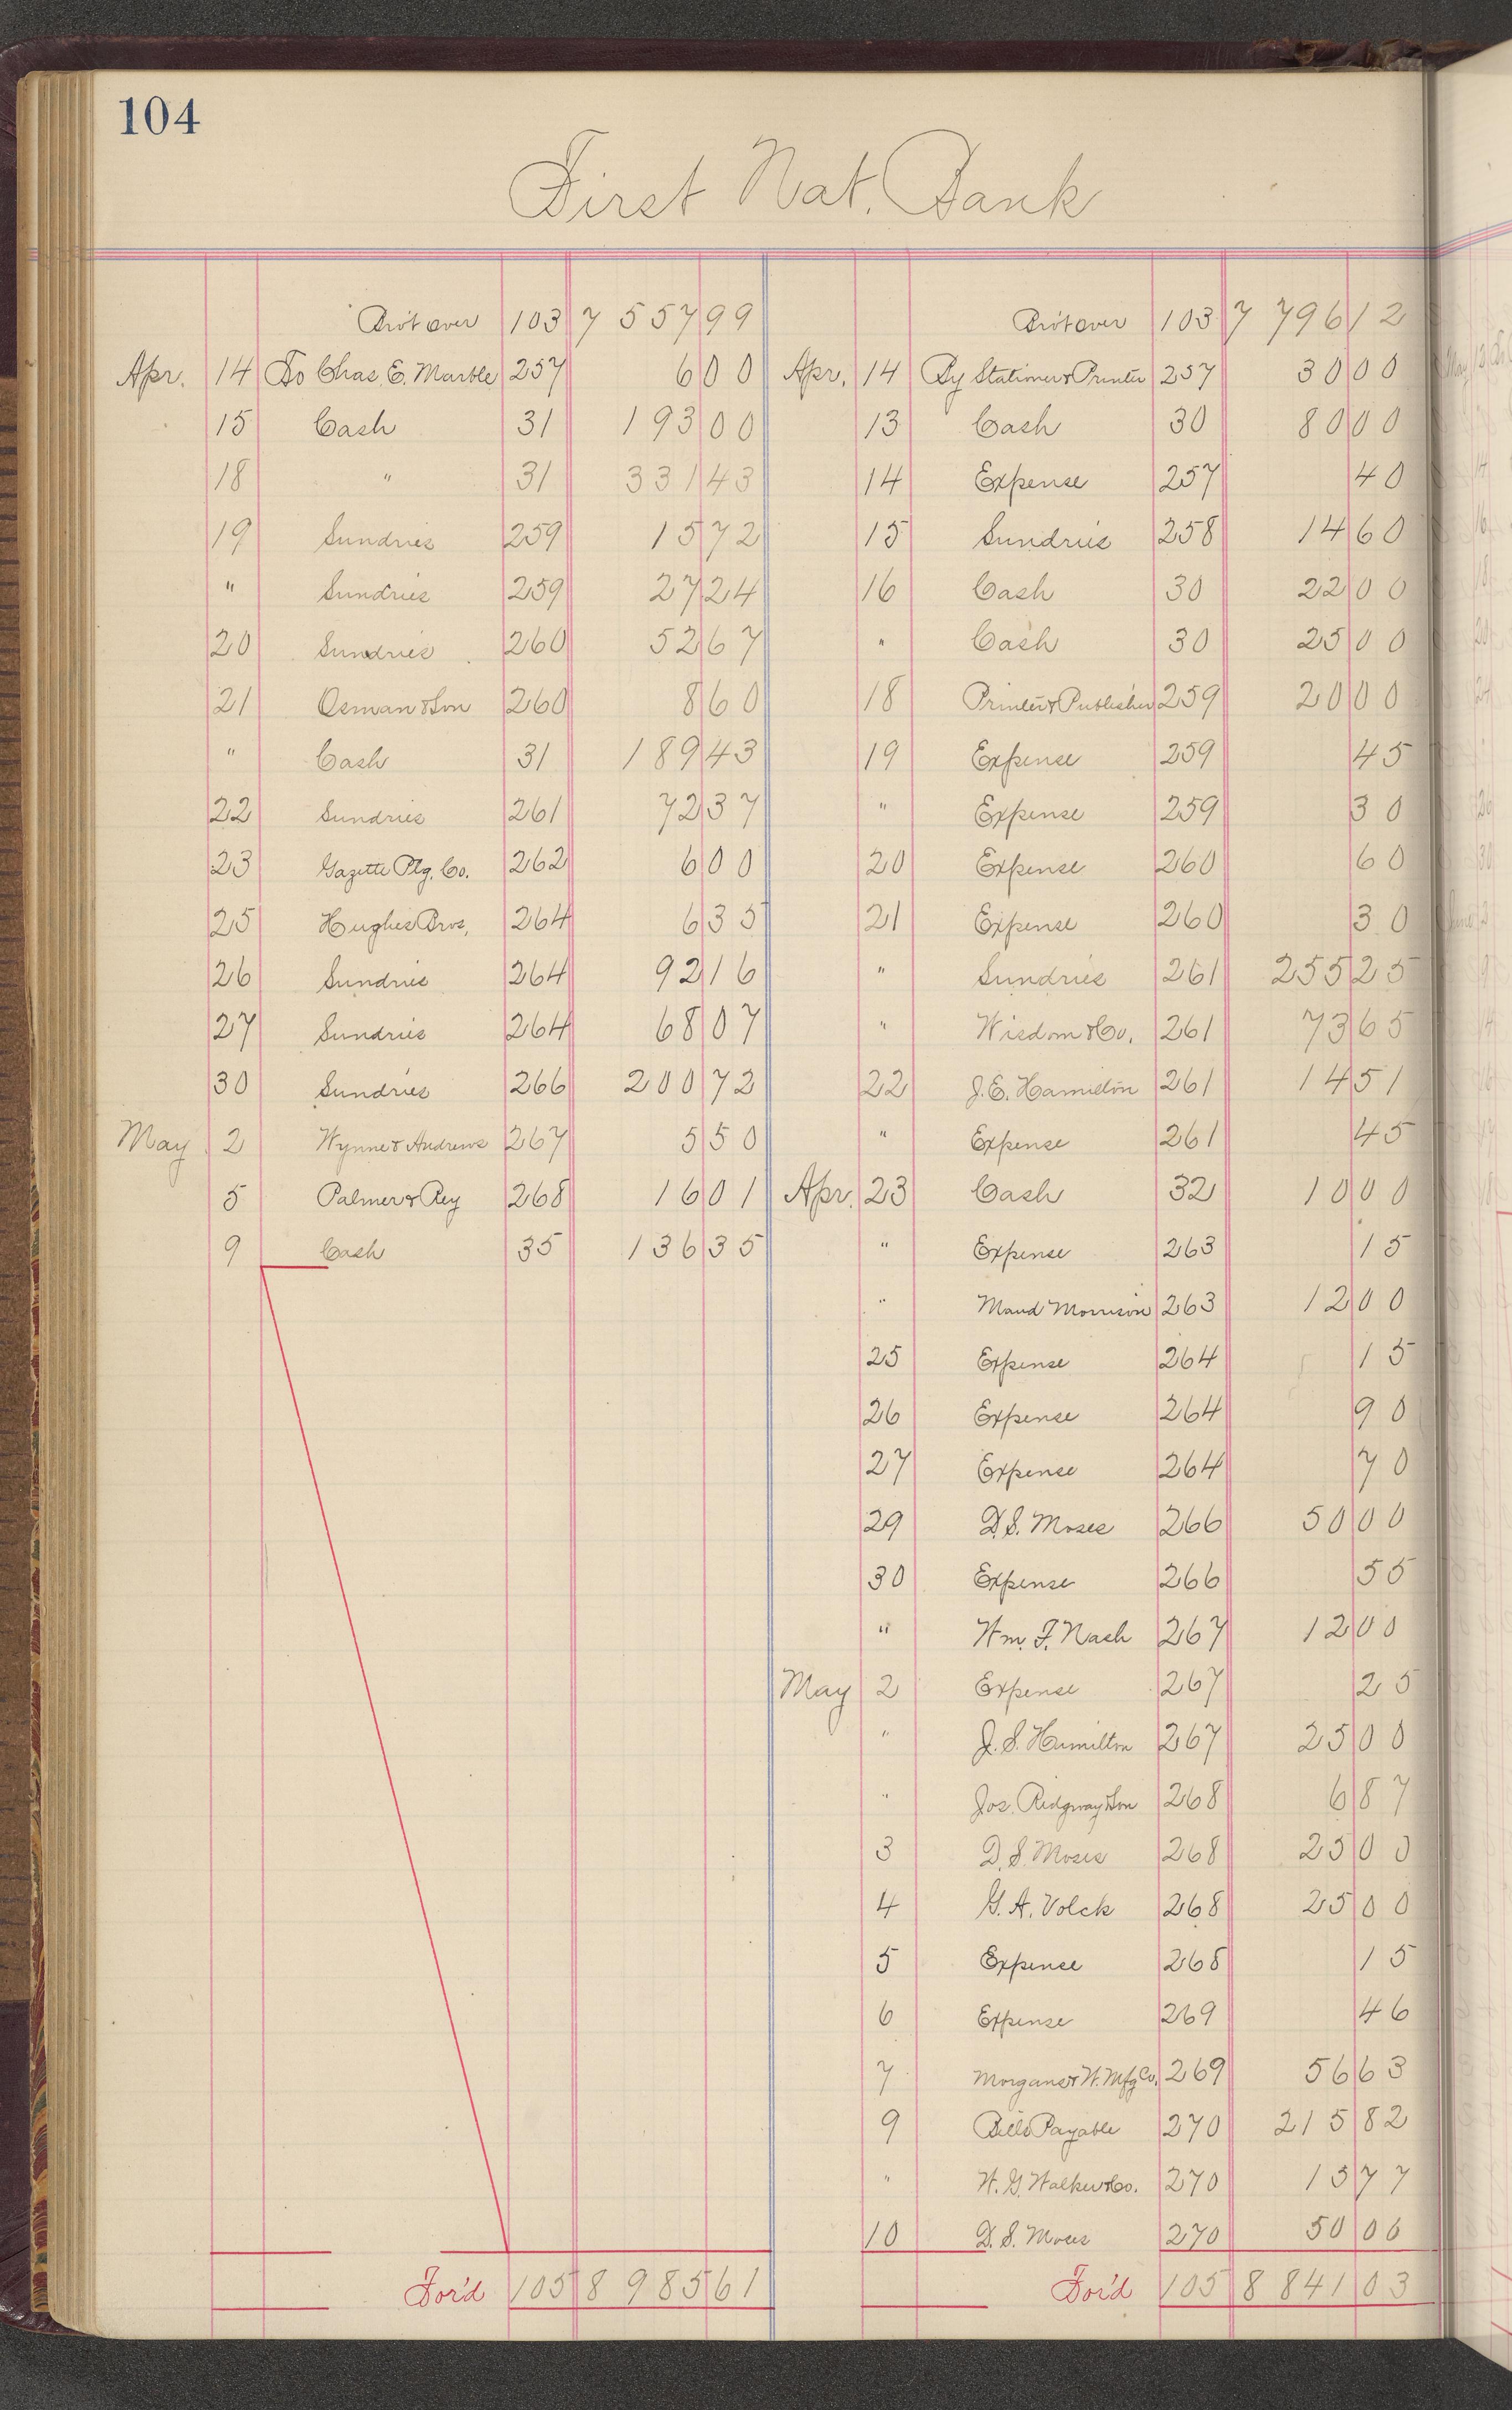 104
First Nat. Bank
Bro't over 103 7 557 99 Bro't over 103 7 796 12
Apr. 14 To Chas. E. Marble 257 6 00 Apr. 14 By Stationer & Printer 257 30 00
15 Cash 31 193 00 13 Cash 30 80 00
18 " 31 331 43 14 Expense 257 40
19 Sundries 259 15 72 15 Sundries 258 14 60
" Sundries 259 27 24 16 Cash 30 22 00
20 Sundries 260 52 67 " Cash 30 25 00
21 Osman & Son 260 8 60 18 Printer & Publisher 259 20 00
" Cash 31 189 43 19 Expense 259 45
22 Sundries 261 72 37 " Expense 259 30
23 Gazette Ptg. Co. 262 6 00 20 Expense 260 60
25 Hughes Bros, 264 6 35 21 Expense 260 30
26 Sundries 264 92 16 " Sundries 261 255 25
27 Sundries 264 68 07 " Wisdom & Co. 261 73 65
30 Sundries 266 200 72 22 J. E. Hamilton 261 14 51
May 2 Wynne & Andrews 267 5 50 " Expense 261 45
5 Palmer & Rey 268 16 01 Apr. 23 Cash 32 10 00
9 Cash 35 136 35 " Expense 263 15
" Maud Morrison 263 12 00
25 Expense 264 15
26 Expense 264 90
27 Expense 264 70
29 D. S. Moses 266 50 00
30 Expense 266 55
" Wm. F. Nash 267 12 00
May 2 Expense 267 25
" J. S. Hamilton 267 25 00
" Jos. Ridgway & Son 268 6 87
3 D. S. Moses 268 25 00
4 G. A. Volck 268 25 00
5 Expense 268 15
6 Expense 269 46
7 Morgans & W. Mfg Co. 269 56 63
9 Bills Payable 270 215 82
" W. G. Walker & Co. 270 15 77
10 D. S. Moses 270 50 00
For'd 105 8 985 61 For'd 105 8 841 03